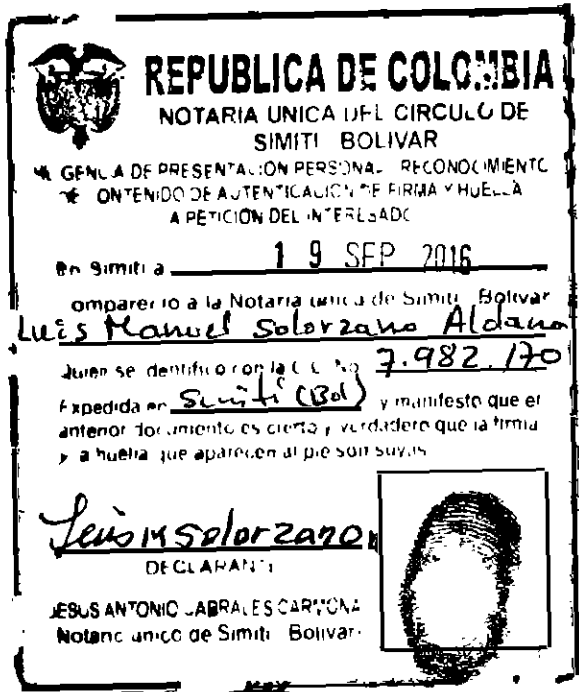 REPUBLICA DE COLOMBIA
NOTARIA UNICA DEL CIRCULO DE
SIMITI BOLIVAR
DE PRESENTACION PERSONAL RECONOCIMIENTO
CONTENIDO DE AUTENTICACION DE FIRMA Y HUELLA
A PETICION DEL INTERESADO
En Simiti a 19 SEP 2016
omparecio a la Notaria unica de Simiti Bolivar
Luis Manuel Solorzano Aldana
Quien se identifico con la C.C. No 7.982.170
Expedida en Simití (Bol) y manifesto que el
anterior documento es cierto y verdadero que la firma
y la huella que aparecen al pie son suyas
Luis M Solorzano
DECLARANTE
JESUS ANTONIO CABRALES CARMONA
Notario unico de Simiti Bolivar